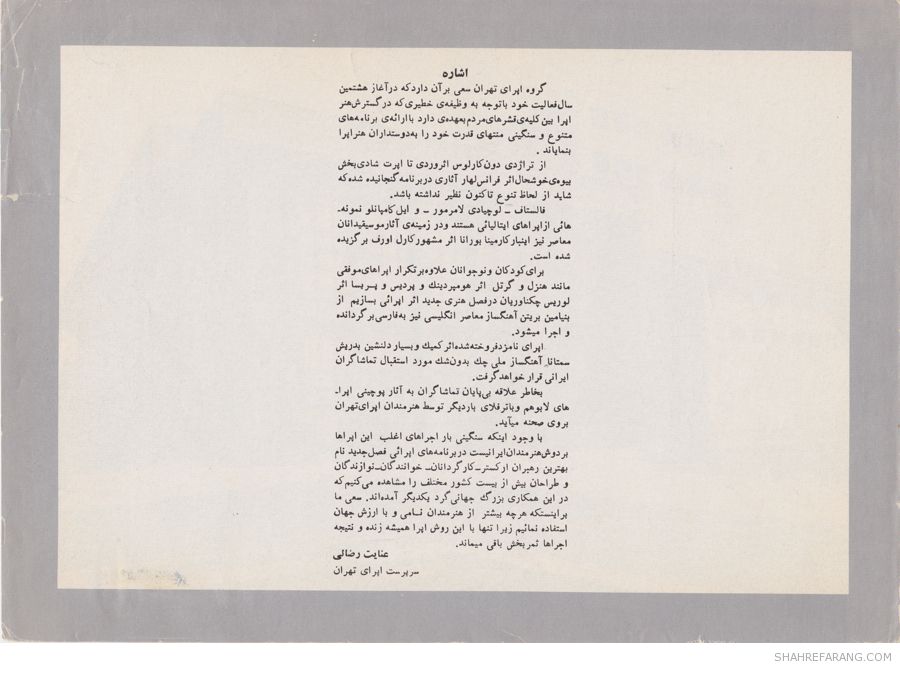 اشاره
گروه اپرای تهران سعی برآن دارد که درآغاز هشتمین
سال فعالیت خود باتوجه به وظیفه‌ی خطیری که درگسترش هنر
اپرا بین کلیه‌ی قشرهای مردم بعهده‌ی دارد باارائه‌ی برنامه‌های
متنوع و سنگینی منتهای قدرت خود را به‌دوستداران هنراپرا
بنمایاند .
از تراژدی دون‌کارلوس اثروردی تا اپرت شادی‌بخش
بیوه‌ی خوشحال اثر فرانس‌لهار آثاری دربرنامه گنجانیده شده که
شاید از لحاظ تنوع تاکنون نظیر نداشته باشد.
فالستاف ـ لوچیادی لامرمور ـ و ایل کامپانلو نمونه‌ـ
هائی ازاپراهای ایتالیائی هستند ودر زمینه‌ی آثارموسیقیدانان
معاصر نیز اینبارکارمینا بورانا اثر مشهورکارل اورف برگزیده
شده است.
برای‌کودکان ونوجوانان علاوه‌برتکرار اپراهای‌موفقی
مانند هنزل و گرتل اثر هومپردینك و پردیس و پریسا اثر
لوریس چکناوریان درفصل هنری جدید اثر اپرائی بسازیم از
بنیامین بریتن آهنگساز معاصر انگلیسی نیز به‌فارسی برگردانده
و اجرا میشود.
اپرای نامزدفروخته‌شده‌اثرکمیك وبسیار دلنشین بدریش
سمتانا آهنگساز ملی چك بدون‌شك مورد استقبال تماشاگران
ایرانی قرار خواهدگرفت.
بخاطر علاقه بی‌پایان تماشاگران به آثار پوچینی اپراـ
های لابوهم وباترفلای باردیگر توسط هنرمندان اپرای‌تهران
بروی صحنه میآید.
با وجود اینکه سنگینی بار اجراهای اغلب این اپراها
بردوش‌هنرمندان‌ایرانیست دربرنامه‌های اپرائی فصل‌جدید نام
بهترین رهبران ارکسترـ کارگردانان‌ـ خوانندگان‌ـ نوازندگان
و طراحان بیش از بیست کشور مختلف را مشاهده می‌کنیم که
در این همکاری بزرگ جهانی گرد یکدیگر آمده‌اند. سعی ما
براینستکه هرچه بیشتر از هنرمندان نامی و با ارزش جهان
استفاده نمائیم زیرا تنها با این روش اپرا همیشه زنده و نتیجه
اجراها ثمربخش باقی میماند.
عنایت رضائی
سرپرست اپرای تهران
SHAHREFARANG.COM